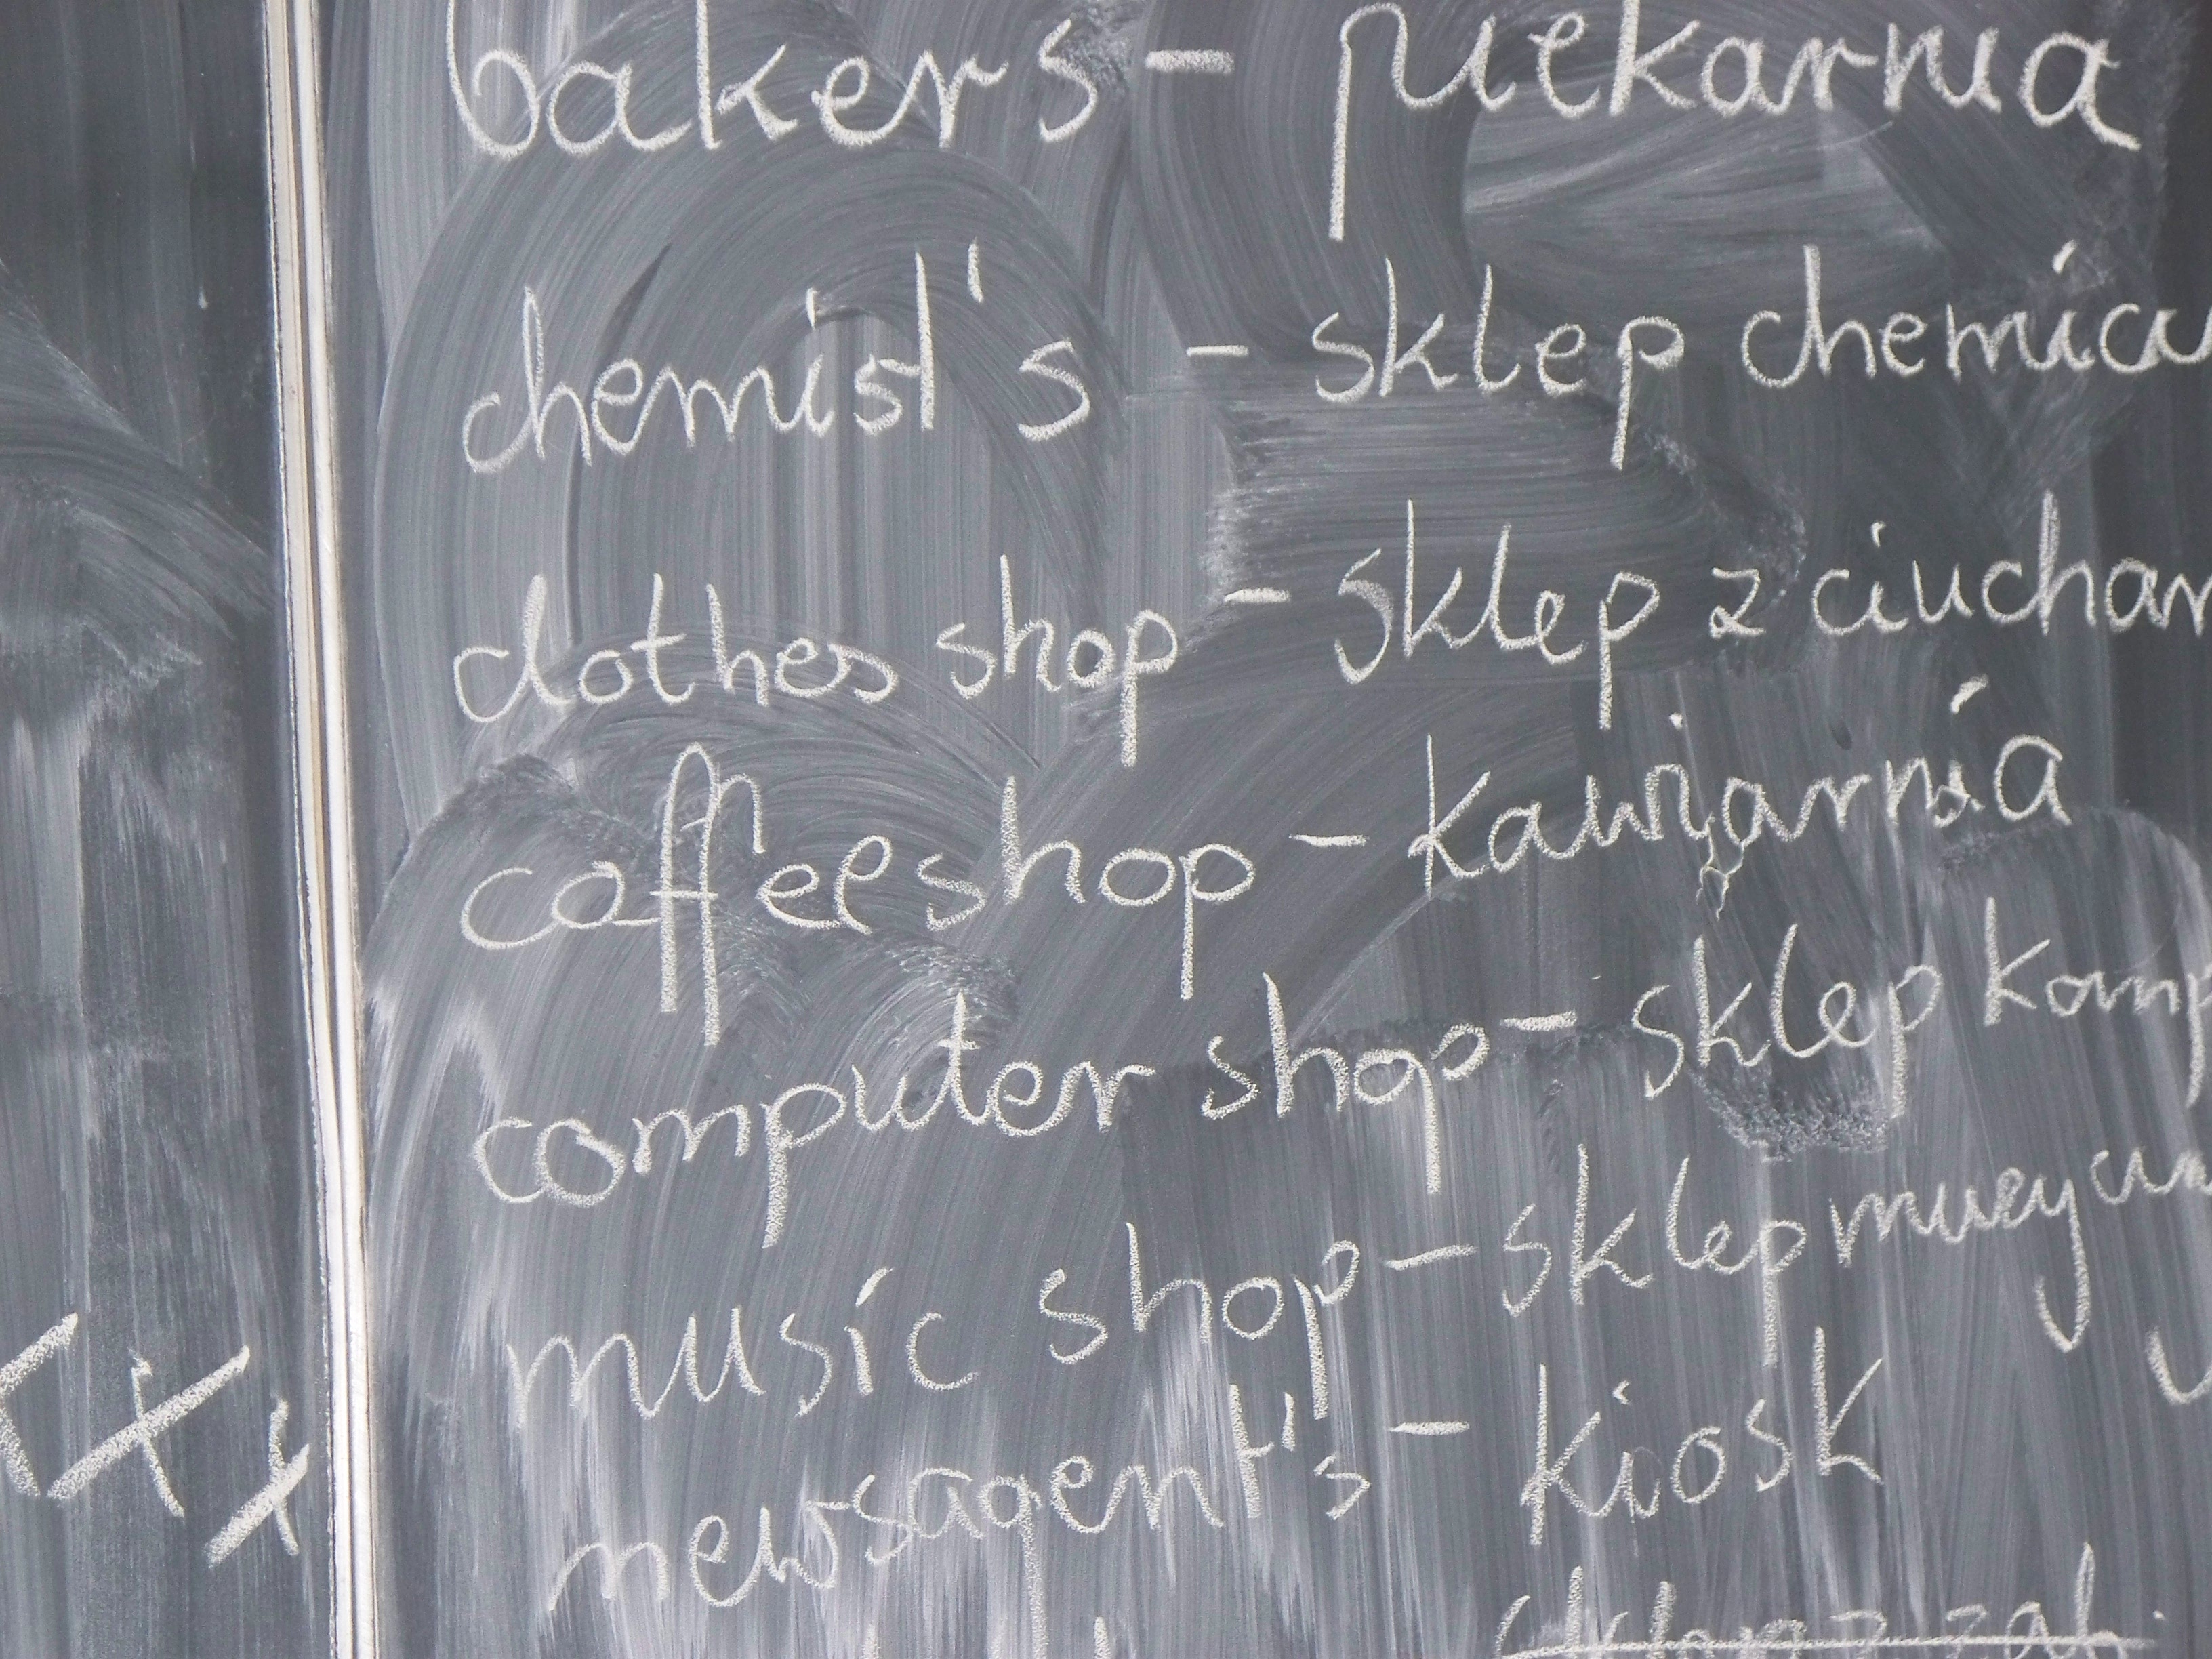 bakers - piekarnia
chemist's - sklep chemicz
clothes shop - sklep z ciucham
coffeeshop - kawiarnia
computer shop - sklep komp
music shop - sklep muzycz
newsagent's - kiosk